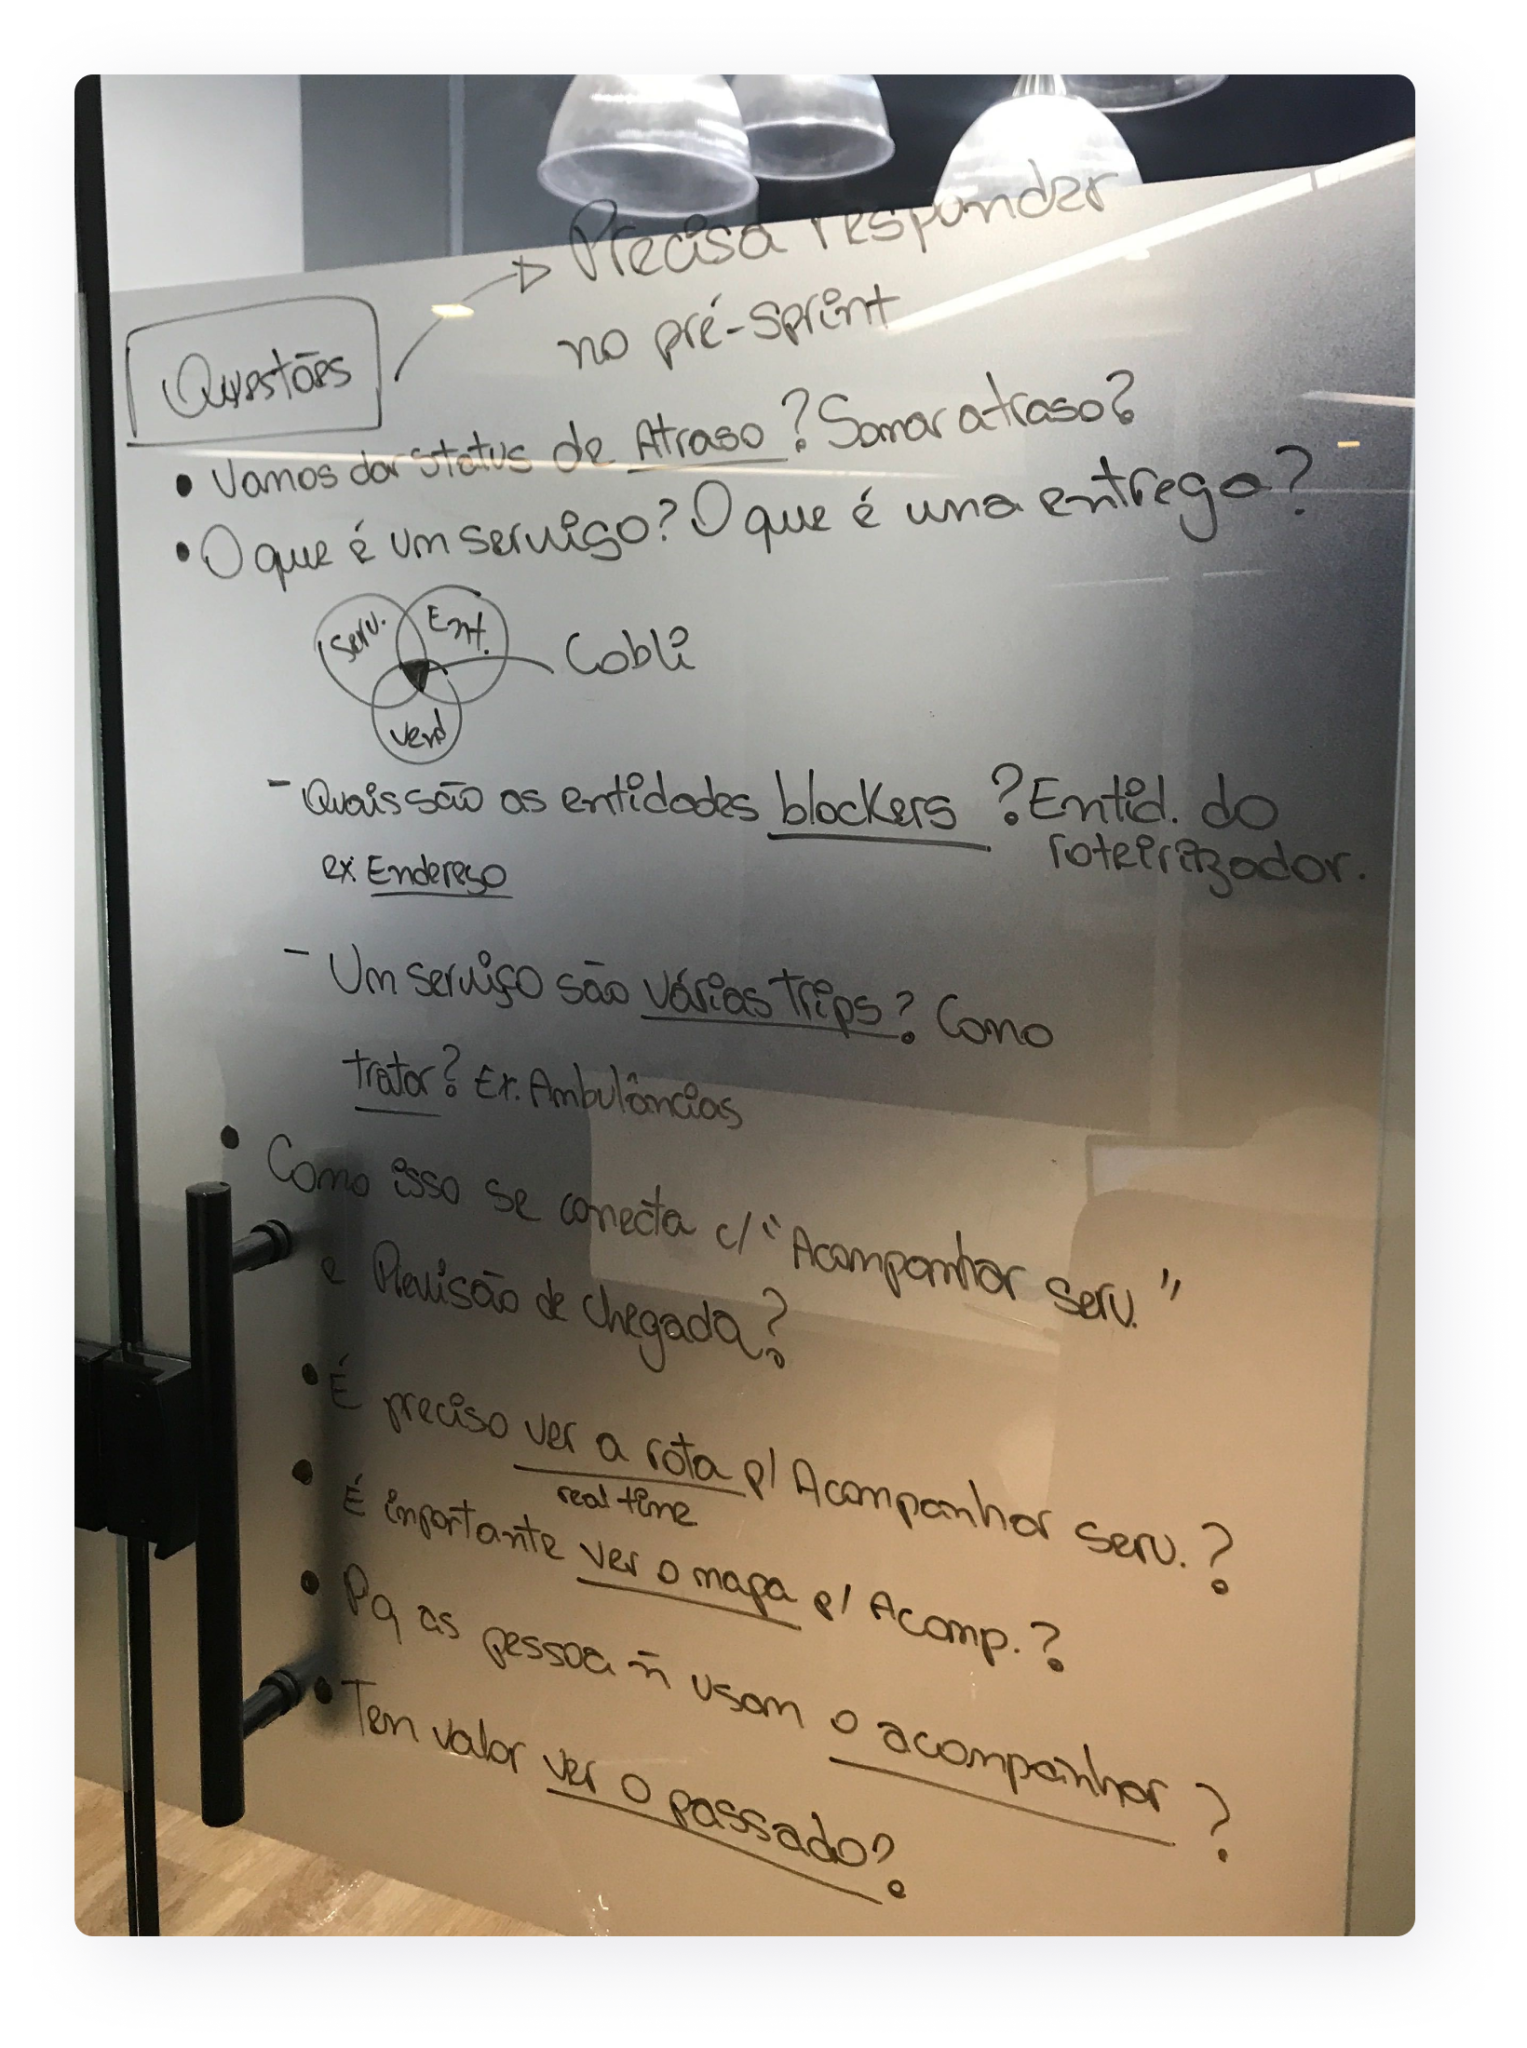 Precisa responder
no pré-sprint
Questões
• Vamos dar status de Atraso? Somar atraso?
• O que é um serviço? O que é uma entrega?
Serv. Ent.
Cobli
Vend
- Quais são as entidades blockers? Entid. do
roteirizador.
ex Endereço
- Um serviço são várias trips? Como
tratar? Ex. Ambulâncias
• Como isso se conecta c/ "Acompanhar serv."
e Previsão de chegada?
• É preciso ver a rota p/ Acompanhar serv.?
real time
• É importante ver o mapa p/ Acomp.?
• Pq as pessoa ñ usam o acompanhar?
• Tem valor ver o passado?